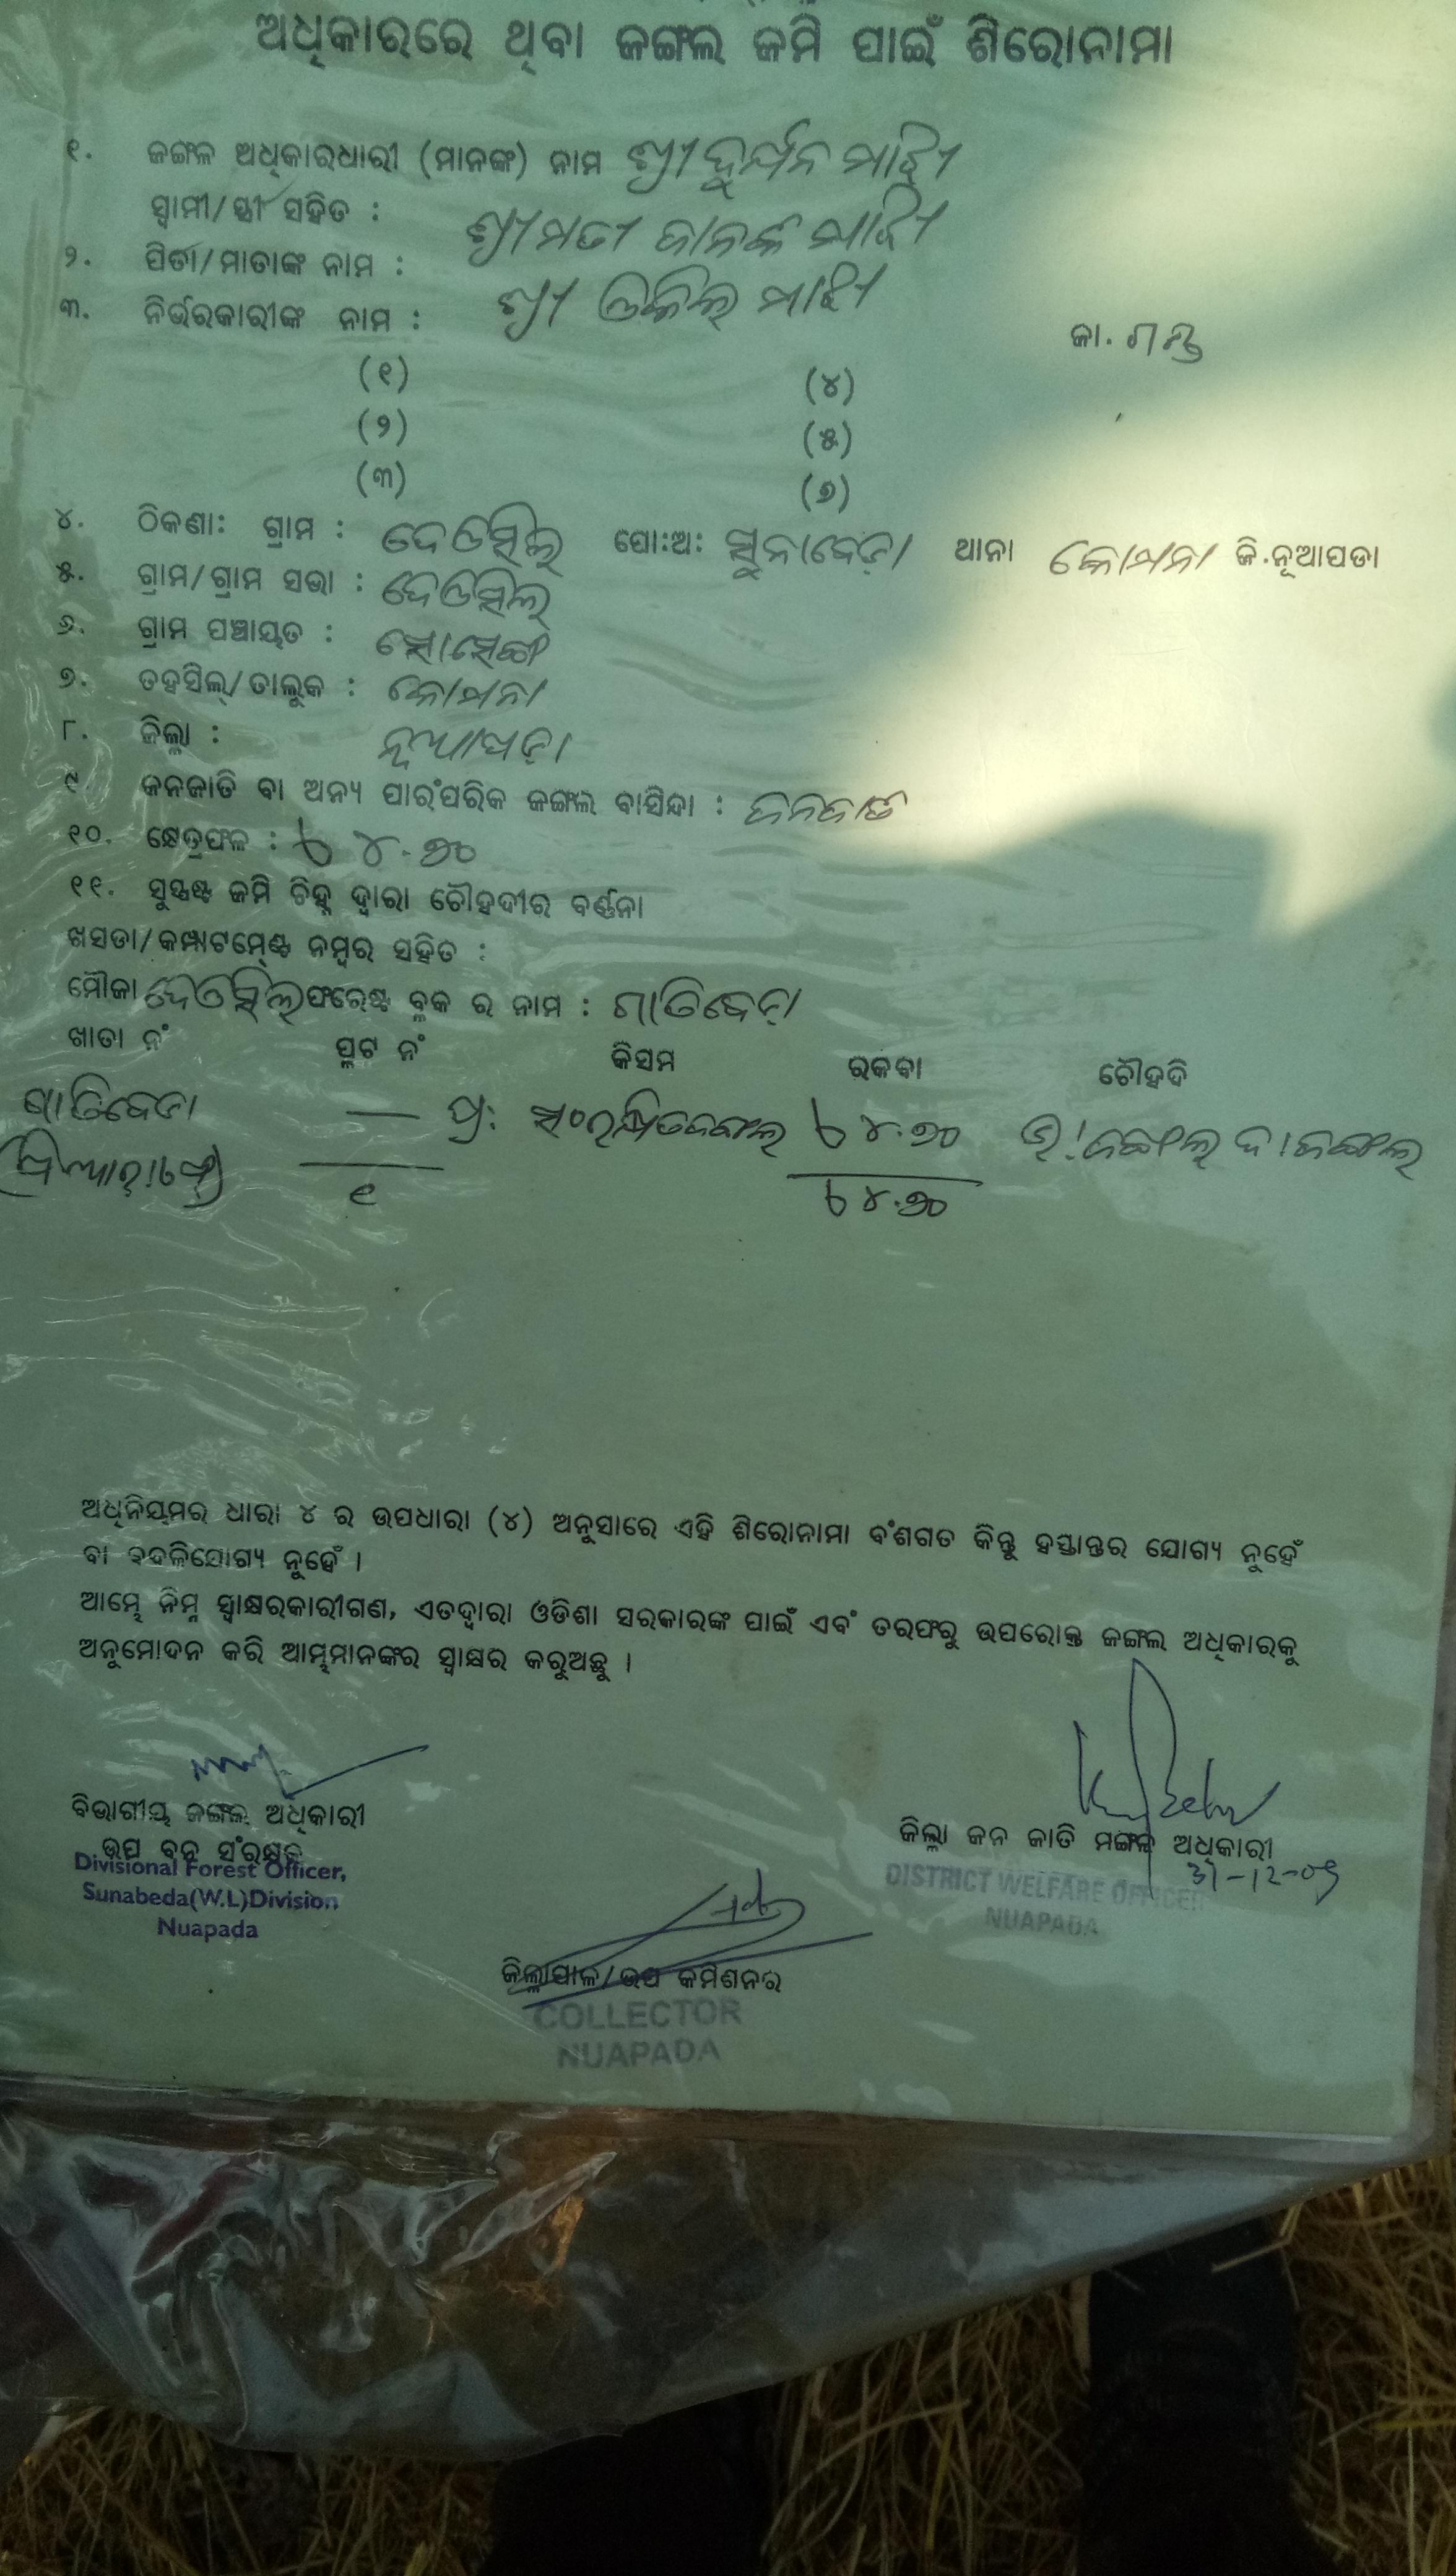 ଅଧିକାରରେ ଥିବା ଜଙ୍ଗଲ ଜମି ପାଇଁ ଶିରୋନାମା
୧. ଜଙ୍ଗଳ ଅଧିକାରଧାରୀ (ମାନଙ୍କ) ନାମ ଶ୍ରୀ ଦୁର୍ଯ୍ୟନ ମାଝି
ସ୍ୱାମୀ/ସ୍ତ୍ରୀ ସହିତ : ଶ୍ରୀମତୀ ଜାନକୀ ମାଝି
୨. ପିତା/ମାତାଙ୍କ ନାମ : ଶ୍ରୀ ଓକିଲ ମାଝି
୩. ନିର୍ଭରକାରୀଙ୍କ ନାମ : ଜା. ଗଣ୍ଡ
(୧) (୪)
(୨) (୫)
(୩) (୬)
୪. ଠିକଣା: ଗ୍ରାମ : ଦେଓସିଲ୍ ପୋ:ଅ: ସୁନାବେଡ଼ା ଥାନା କୋମନା ଜି.ନୂଆପଡା
୫. ଗ୍ରାମ/ଗ୍ରାମ ସଭା : ଦେଓସିଲ୍
୬. ଗ୍ରାମ ପଞ୍ଚାୟତ : ସୋସେଙ୍ଗ
୭. ତହସିଲ୍/ତାଲୁକ : କୋମନା
୮. ଜିଲ୍ଲା : ନୂଆପଡ଼ା
୯ ଜନଜାତି ବା ଅନ୍ୟ ପାରଂପରିକ ଜଙ୍ଗଲ ବାସିନ୍ଦା : ଜନଜାତି
୧୦. କ୍ଷେତ୍ରଫଳ : ୪.୬୦
୧୧. ସୁସ୍ପଷ୍ଟ ଜମି ଚିହ୍ନ ଦ୍ୱାରା ଚୌହଦୀର ବର୍ଣ୍ଣନା
ଖସଡା/କମ୍ପାଟମେଣ୍ଟ ନମ୍ବର ସହିତ :
ମୌଜା ଦେଓସିଲ୍ ଫରେଷ୍ଟ ବ୍ଲକ ର ନାମ : ଗାତିବେଡ଼ା
ଖାତା ନଂ ପ୍ଲଟ ନଂ କିସମ ରକବା ଚୌହଦି
ଗାତିବେଡା — ପ୍ର: ସଂରକ୍ଷିତଜଙ୍ଗଲ ୪.୬୦
୧ ୪.୬୦
ଅଧିନିୟମର ଧାରା ୪ ର ଉପଧାରା (୪) ଅନୁସାରେ ଏହି ଶିରୋନାମା ବଂଶଗତ କିନ୍ତୁ ହସ୍ତାନ୍ତର ଯୋଗ୍ୟ ନୁହେଁ
ବା ବଦଳିଯୋଗ୍ୟ ନୁହେଁ ।
ଆମ୍ଭେ ନିମ୍ନ ସ୍ୱାକ୍ଷରକାରୀଗଣ, ଏତଦ୍ୱାରା ଓଡିଶା ସରକାରଙ୍କ ପାଇଁ ଏବଂ ତରଫରୁ ଉପରୋକ୍ତ ଜଙ୍ଗଲ ଅଧିକାରକୁ
ଅନୁମୋଦନ କରି ଆମ୍ଭମାନଙ୍କର ସ୍ୱାକ୍ଷର କରୁଅଛୁ ।
ବିଭାଗୀୟ ଜଙ୍ଗଲ ଅଧିକାରୀ
ଉପ ବନ ସଂରକ୍ଷକ
Divisional Forest Officer,
Sunabeda(W.L)Division
Nuapada
ଜିଲ୍ଲା ଜନ ଜାତି ମଙ୍ଗଳ ଅଧିକାରୀ
31-12-09
DISTRICT WELFARE OFFICER
NUAPADA
ଜିଲ୍ଲାପାଳ/ଉପ କମିଶନର
COLLECTOR
NUAPADA